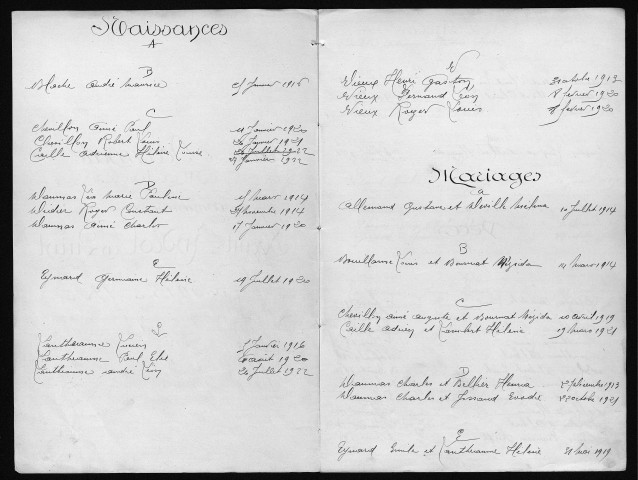 Naissances
A
B
Blache André Maurice 25 Janvier 1915
C
Chevillon Aimé Paul 21 Janvier 1920
Chevillon Robert Louis 20 Janvier 1921
Caille Adrienne Hélène Louise 26 Juillet 1922
27 Janvier 1922
D
Daumas Léo Marie Pauline 15 mars 1914
Didier Roger Constant 24 novembre 1914
Daumas Aimé Charles 17 Janvier 1920
E
Eymard Germaine Hélène 19 Juillet 1920
L
Lantheaume Lucien 5 Janvier 1916
Lantheaume Paul Elie 6 août 1920
Lantheaume André Léon 20 Juillet 1922
V
Vieux Henri Gaston 31 octobre 1913
Vieux Fernand Léon 8 février 1920
Vieux Roger Louis 8 février 1920
Mariages
A
Allemand Gustave et Deville 10 Juillet 1914
B
Bouillanne Louis et Bournat Brigida 21 mars 1914
C
Chevillon Aimé Auguste et Bournat Brigida 20 août 1919
Caille Adrien et Lambert Hélène 19 mars 1921
D
Daumas Charles et Bellier Henria 27 décembre 1913
Daumas Charles et Jossaud Evodie 22 octobre 1921
E
Eymard Emile et Lantheaume Hélène 31 mai 1919